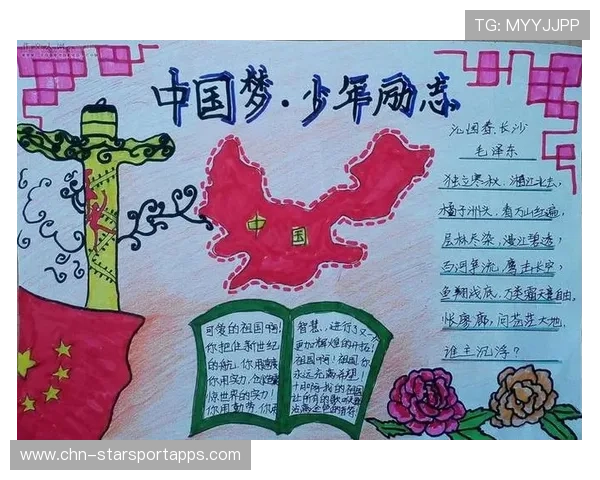 TG: MYYJJPP
中国梦·少年励志
沁园春.长沙
毛泽东
独立寒秋，湘江北去，
橘子洲头，看万山红遍，
层林尽染，漫江碧透，
百河争流，鹰击长空，
鱼翔浅底，万类霜天竞自由，
怅廖廓，问苍茫大地，
谁主沉浮？
中国
可爱的祖国啊！
你把住新世纪
你用实力，
惊世界的实力！
你用勤劳
智慧，进行了又一次
更加辉煌的开拓！
祖国啊！祖国
永远充满希望！
www.chn-starsportapps.com